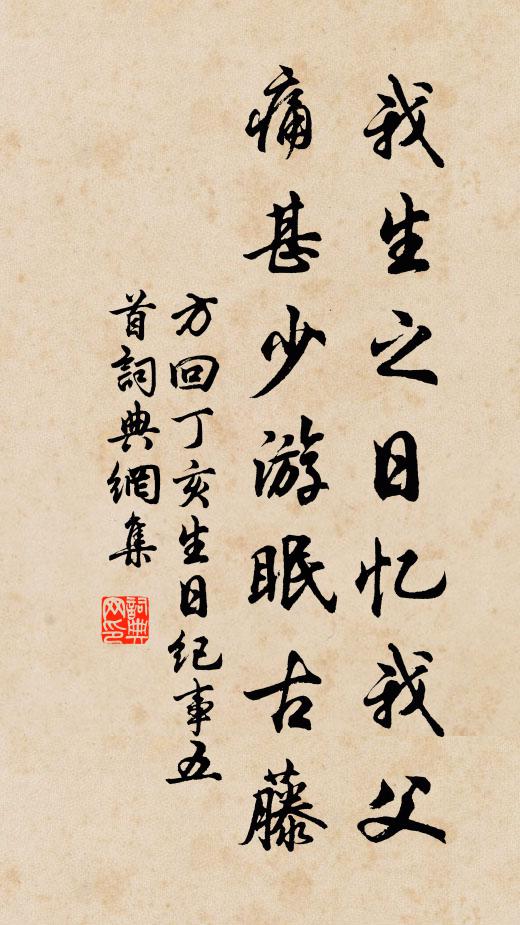 我生之日忆我父
痛甚少游眠古藤
方回丁亥生日纪事五
首詞典網集
詞典
网印